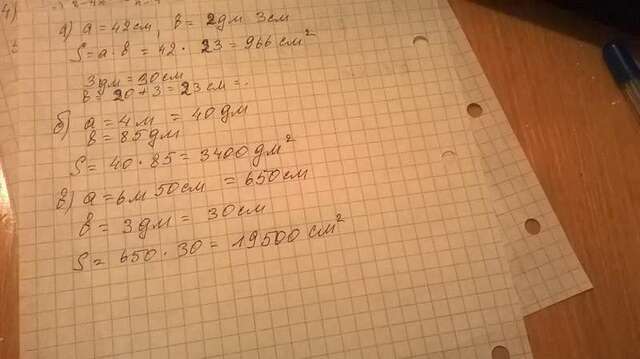 4)
а) a = 42см, в = 2дм 3см
S = a · в = 42 · 23 = 966 см²
3дм = 30см
в = 20 + 3 = 23см =.
б) a = 4м = 40дм
в = 85дм
S = 40 · 85 = 3400дм²
в) a = 6м 50см = 650см
в = 3дм = 30см
S = 650 · 30 = 19500 см²